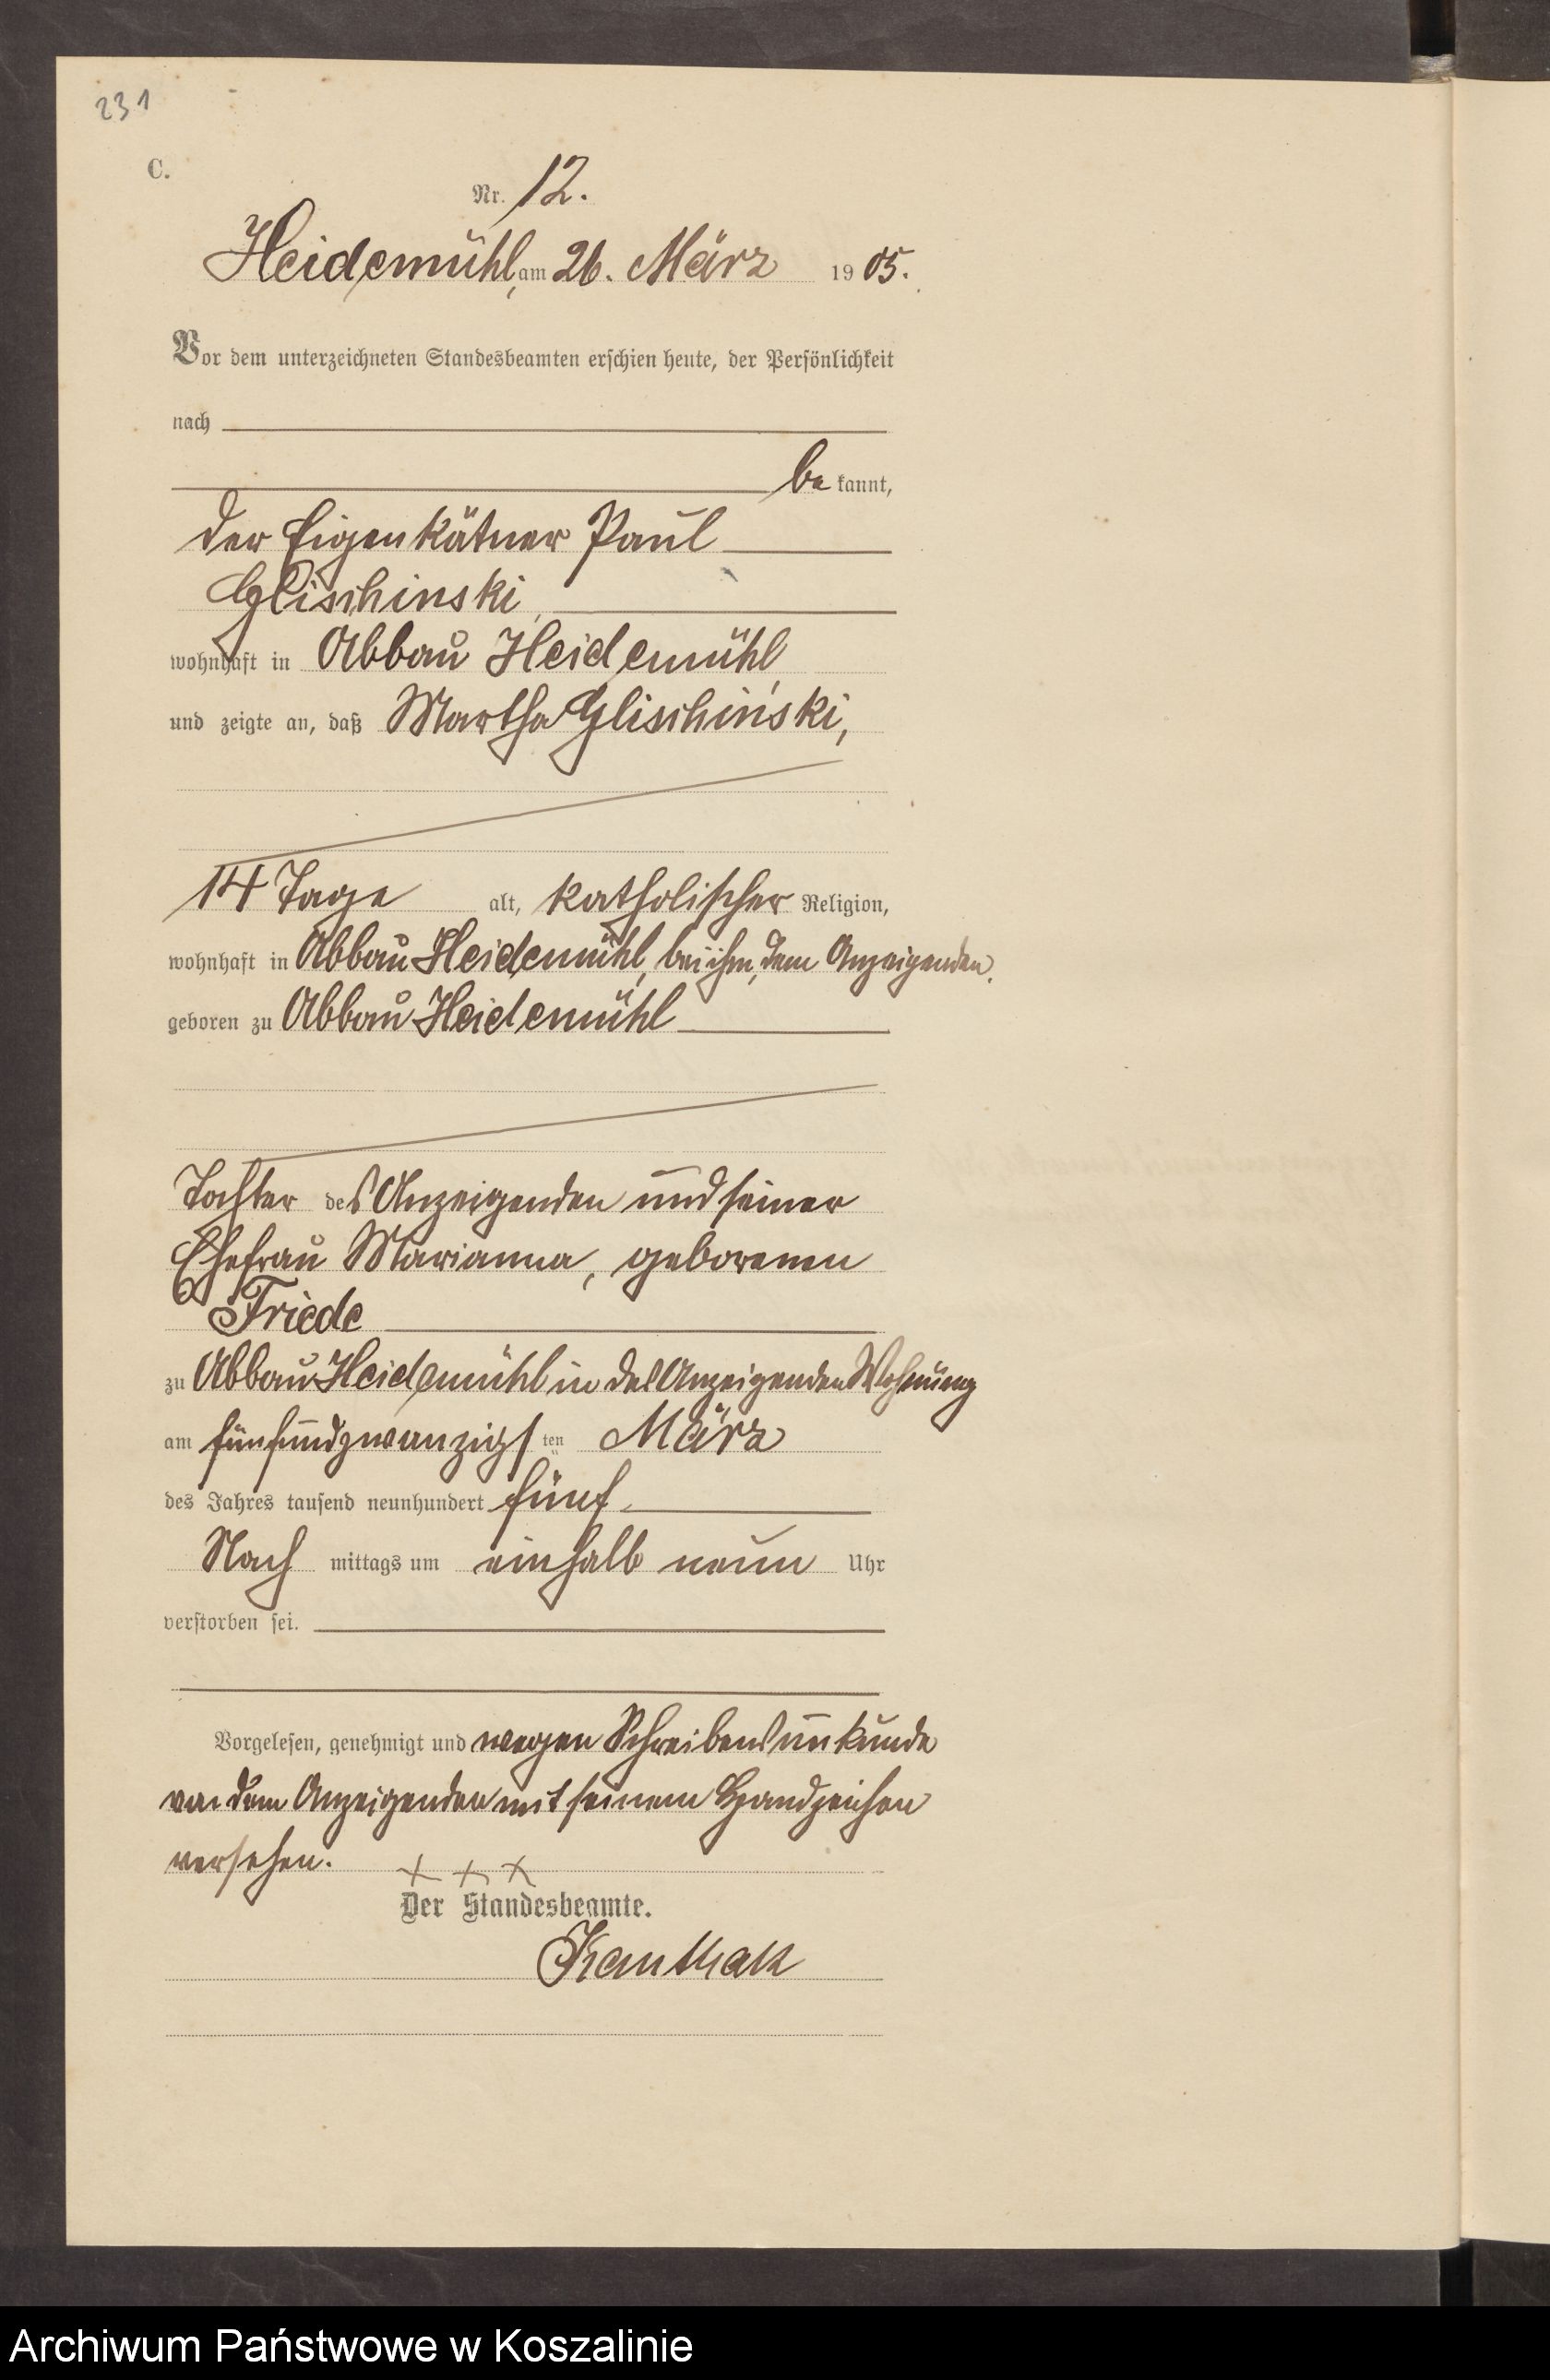 231
C.
Nr. 12.
Heidemühl, am 26. März 1905.
Vor dem unterzeichneten Standesbeamten erschien heute, der Persönlichkeit
nach
be kannt,
der Eigenkätner Paul
Glischinski,
wohnhaft in Abbau Heidemühl,
und zeigte an, daß Martha Glischinski,
14 Tage alt, katholischer Religion,
wohnhaft in Abbau Heidemühl, bei ihm, dem Anzeigenden,
geboren zu Abbau Heidemühl
Tochter des Anzeigenden und seiner
Ehefrau Marianna, geborenen
Friede
zu Abbau Heidemühl in des Anzeigenden Wohnung
am fünfundzwanzigsten März
des Jahres tausend neunhundert fünf
Nach mittags um einhalb neun Uhr
verstorben sei.
Vorgelesen, genehmigt und wegen Schreibensunkunde
von dem Anzeigenden mit seinem Handzeichen
versehen. + + +
Der Standesbeamte.
Kanthak
Archiwum Państwowe w Koszalinie